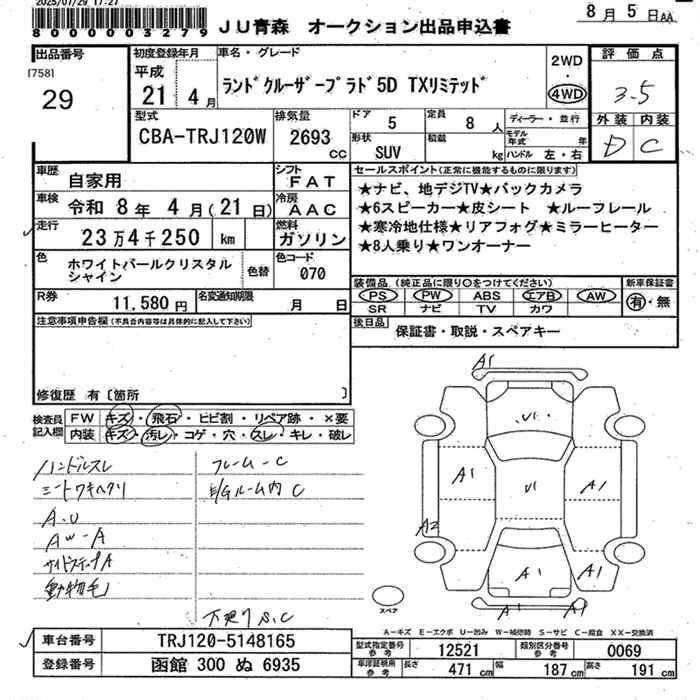 2025/07/29 17:27
8 0 0 0 0 0 3 2 7 9
JU青森 オークション出品申込書
8月5日AA
出品番号
[758]
29
初度登録年月
平成
21年4月
車名・グレード
ランドクルーザープラド5D TXリミテッド
2WD
・
4WD
評価点
3.5
外装 内装
D C
型式
CBA-TRJ120W
排気量
2693
cc
ドア 5
定員 8人
形状 SUV
積載 kg
ディーラー・並行
モデル年式 年
ハンドル 左・右
車歴 自家用
車検 令和 8年 4月(21日)
走行 23万4千250 km
色 ホワイトパールクリスタルシャイン
色替
シフト FAT
冷房 AAC
燃料 ガソリン
色コード 070
R券 11,580円
名変通知期限 月 日
セールスポイント(正常に機能するものに限ります)
★ナビ、地デジTV★バックカメラ
★6スピーカー★皮シート ★ルーフレール
★寒冷地仕様★リアフォグ★ミラーヒーター
★8人乗り★ワンオーナー
装備品(純正品に限り○をつけてください)
PS PW ABS エアB AW
SR ナビ TV カワ
新車保証書
有・無
後日品 保証書・取説・スペアキー
注意事項申告欄(不具合内容等は具体的に記入して下さい)
修復歴 有〔箇所 〕
検査員記入欄
FW キズ・飛石・ヒビ割・リペア跡・×要
内装 キズ・汚レ・コゲ・穴・スレ・キレ・破レ
ハンドルスレ
シートワキヘタリ
A.U
AW-A
サイドステップA
動物毛
フレームーC
E/Gルーム内C
下廻りS.C
A1
U1
A1
U1
A1
A2
A1
A1
A1
A1
スペア
A-キズ E-エクボ U-凹み W-補修跡 S-サビ C-腐食 XX-交換済
車台番号 TRJ120-5148165
登録番号 函館 300 ぬ 6935
型式指定番号 参考 12521
類別区分番号 参考 0069
車検証積用 参考 長さ 471cm 幅 187cm 高さ 191cm